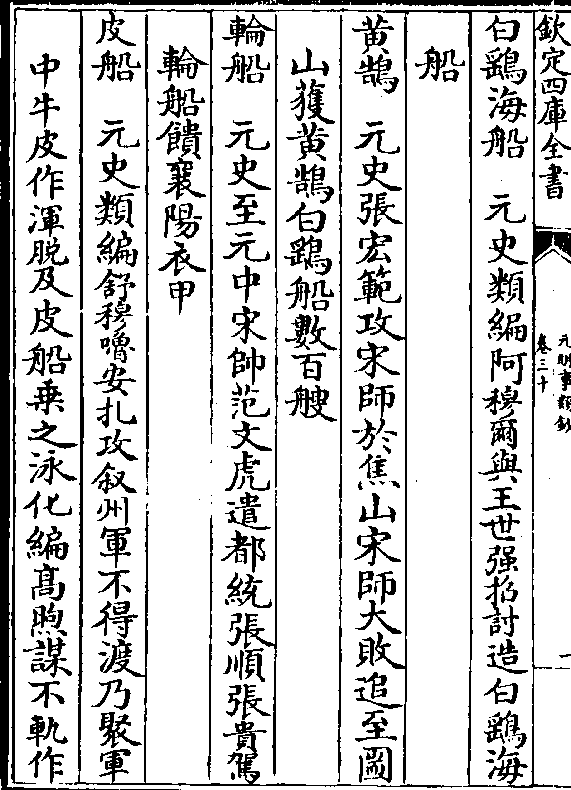 欽定四庫全書
元明事類鈔
卷三十
一
白鷂海船　元史類編阿穆爾與王世强招討造白鷂海
船
黄鵠　元史張宏範攻宋師於焦山宋師大敗追至圌
山獲黄鵠白鷂船數百艘
輪船　元史至元中宋帥范文虎遣都統張順張貴駕
輪船饋襄陽衣甲
皮船　元史類編舒穆嚕安扎攻叙州軍不得渡乃聚軍
中牛皮作渾脱及皮船乗之泳化編髙煦謀不軌作